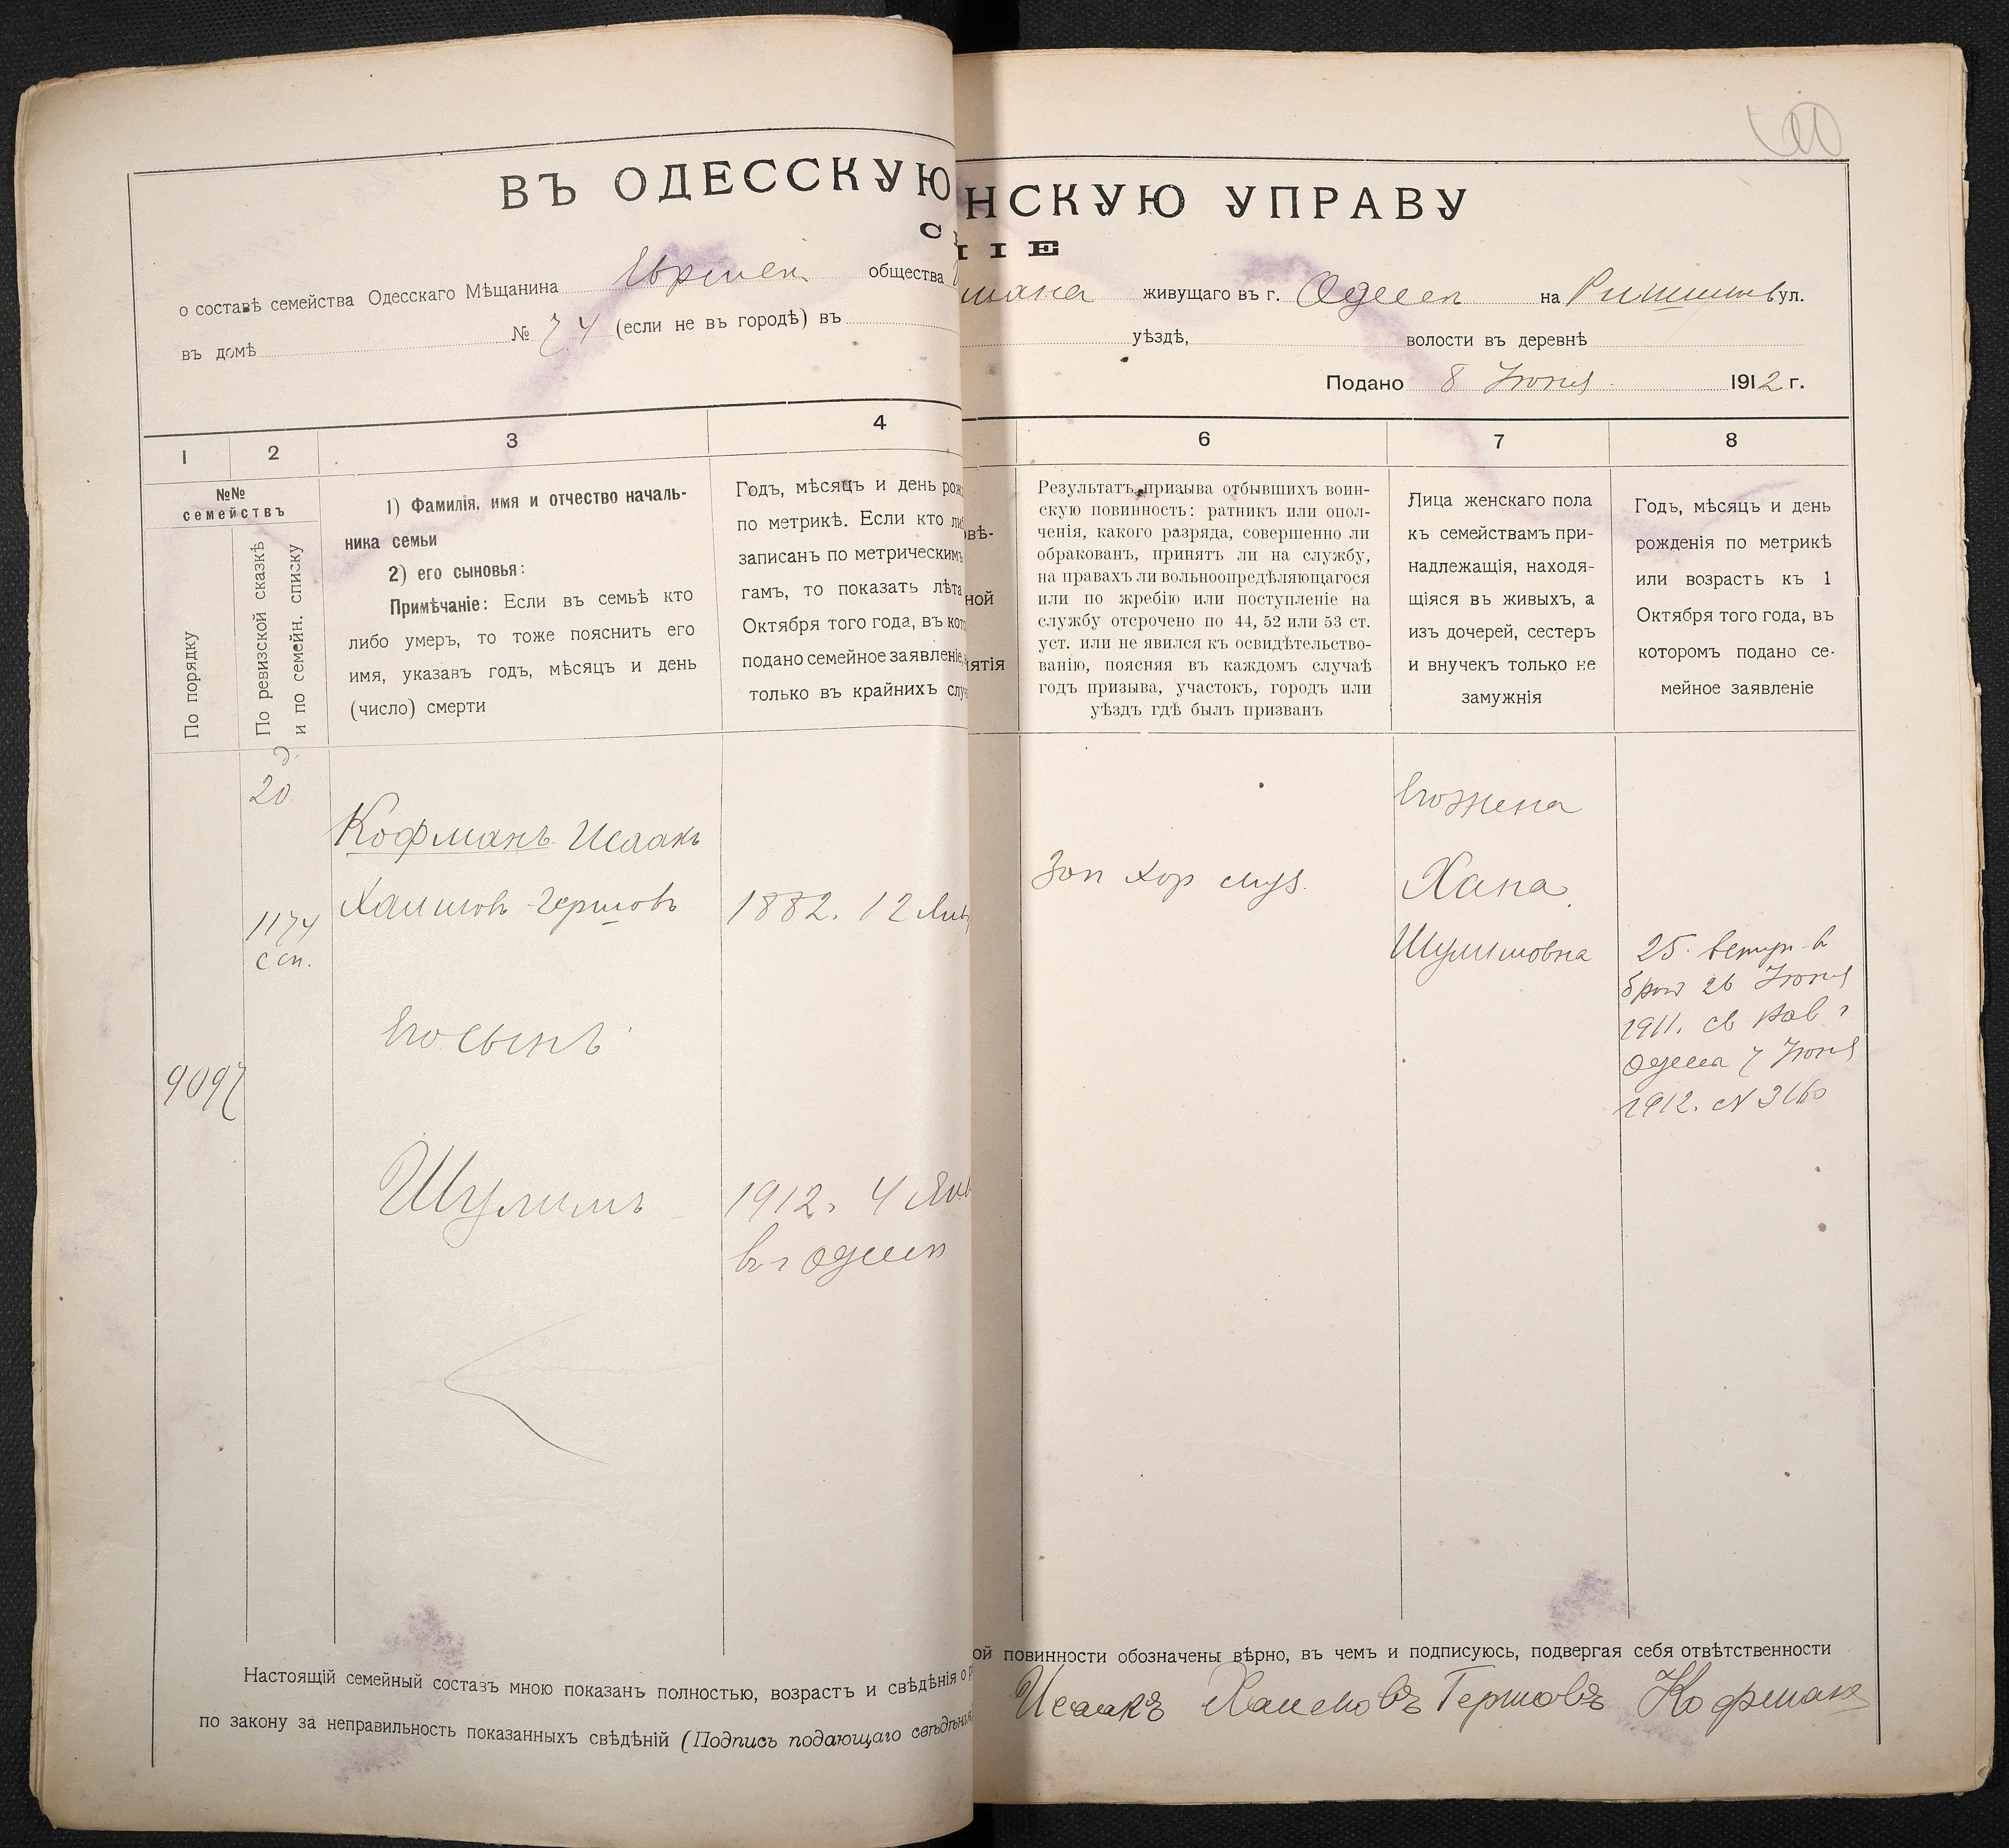 ВЪ ОДЕССКУЮ НСКУЮ УПРАВУ
С ІІЕ
о составѣ семейства Одесскаго Мѣщанина общества мана живущаго въ г. Одессѣ на ул.
въ домѣ № 74 (если не въ городѣ) въ уѣздѣ, волости въ деревнѣ
Подано 8 Іюня 1912 г.
1 2 3 4 6 7 8
№№
семействъ
По порядку
По ревизской сказкѣ
и по семейн. списку
1) Фамилія, имя и отчество началь-
ника семьи
2) его сыновья:
Примѣчаніе: Если въ семьѣ кто
либо умеръ, то тоже пояснить его
имя, указавъ годъ, мѣсяцъ и день
(число) смерти
Годъ, мѣсяцъ и день рож
по метрикѣ. Если кто ли
записанъ по метрическимъ
гамъ, то показать лѣта
Октября того года, въ кот
подано семейное заявленіе,
только въ крайнихъ слу
овѣ-
ной
нятія
Результатъ призыва отбывшихъ воин-
скую повинность: ратникъ или опол-
ченія, какого разряда, совершенно ли
обракованъ, принятъ ли на службу,
на правахъ ли вольноопредѣляющагося
или по жребію или поступленіе на
службу отсрочено по 44, 52 или 53 ст.
уст. или не явился къ освидѣтельство-
ванію, поясняя въ каждомъ случаѣ
годъ призыва, участокъ, городъ или
уѣздъ гдѣ былъ призванъ
Лица женскаго пола
къ семействамъ при-
надлежащія, находя-
щіяся въ живыхъ, а
изъ дочерей, сестеръ
и внучекъ только не
замужнія
Годъ, мѣсяцъ и день
рожденія по метрикѣ
или возрастъ къ 1
Октября того года, въ
которомъ подано се-
мейное заявленіе
20
1174
с сп.
9097
Кофманъ Исаакъ
Хаимовъ-Гершовъ
1882. 12 Янв
Его сынъ
Шулимъ
1912. 4 Янв
въ г Одессѣ
Зап
Его жена
Хана
Шулимовна
25. вступ. въ
бракъ 26 Іюня
1911. св Рав г
Одесса 7 Іюня
1912. №
Настоящій семейный составъ мною показанъ полностью, возрастъ и свѣдѣнія о ой повинности обозначены вѣрно, въ чемъ и подписуюсь, подвергая себя отвѣтственности
по закону за неправильность показанныхъ свѣдѣній (Подпись подающаго свѣдѣнія Исаакъ Хаимовъ Гершовъ Кофманъ